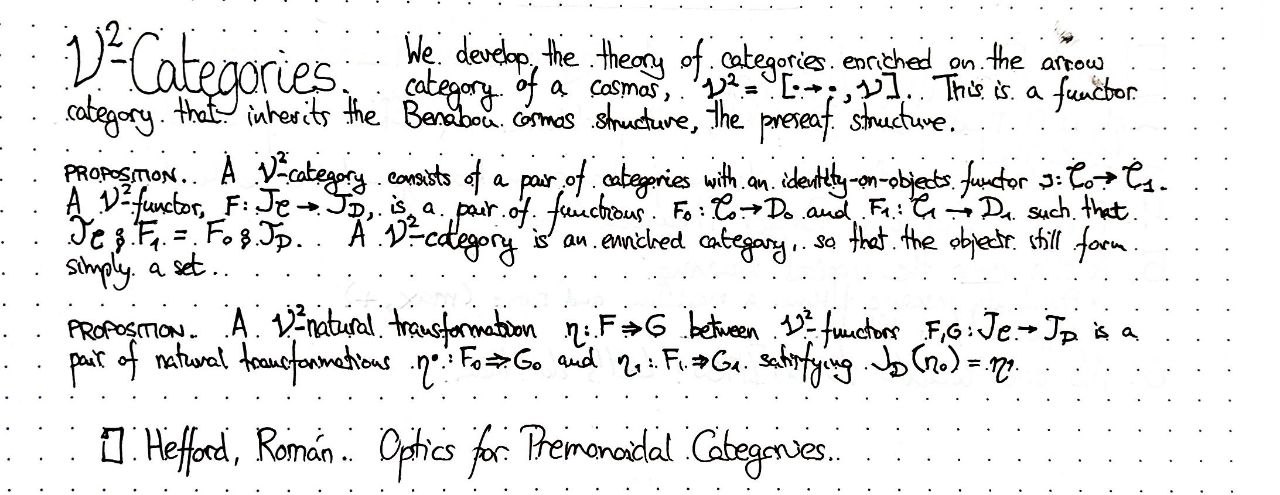 𝒱²-Categories. We develop the theory of categories enriched on the arrow
category of a cosmos, 𝒱² = [·→·, 𝒱]. This is a functor
category that inherits the Benabou cosmos structure, the preseaf structure.
PROPOSITION. A 𝒱²-category consists of a pair of categories with an identity-on-objects functor J: ℂ₀→ℂ₁.
A 𝒱²-functor, F: Jℂ → J𝔻, is a pair of functions F₀: ℂ₀→D₀ and F₁: ℂ₁→D₁ such that
Jℂ ⨾ F₁ = F₀ ⨾ J𝔻. A 𝒱²-category is an enriched category, so that the objects still form
simply a set.
PROPOSITION. A 𝒱²-natural transformation η: F⇒G between 𝒱²-functors F,G: Jℂ→J𝔻 is a
pair of natural transformations η₀: F₀⇒G₀ and η₁: F₁⇒G₁ satisfying J𝔻(η₀) = η₁.
Hefford, Román. Optics for Premonoidal Categories.